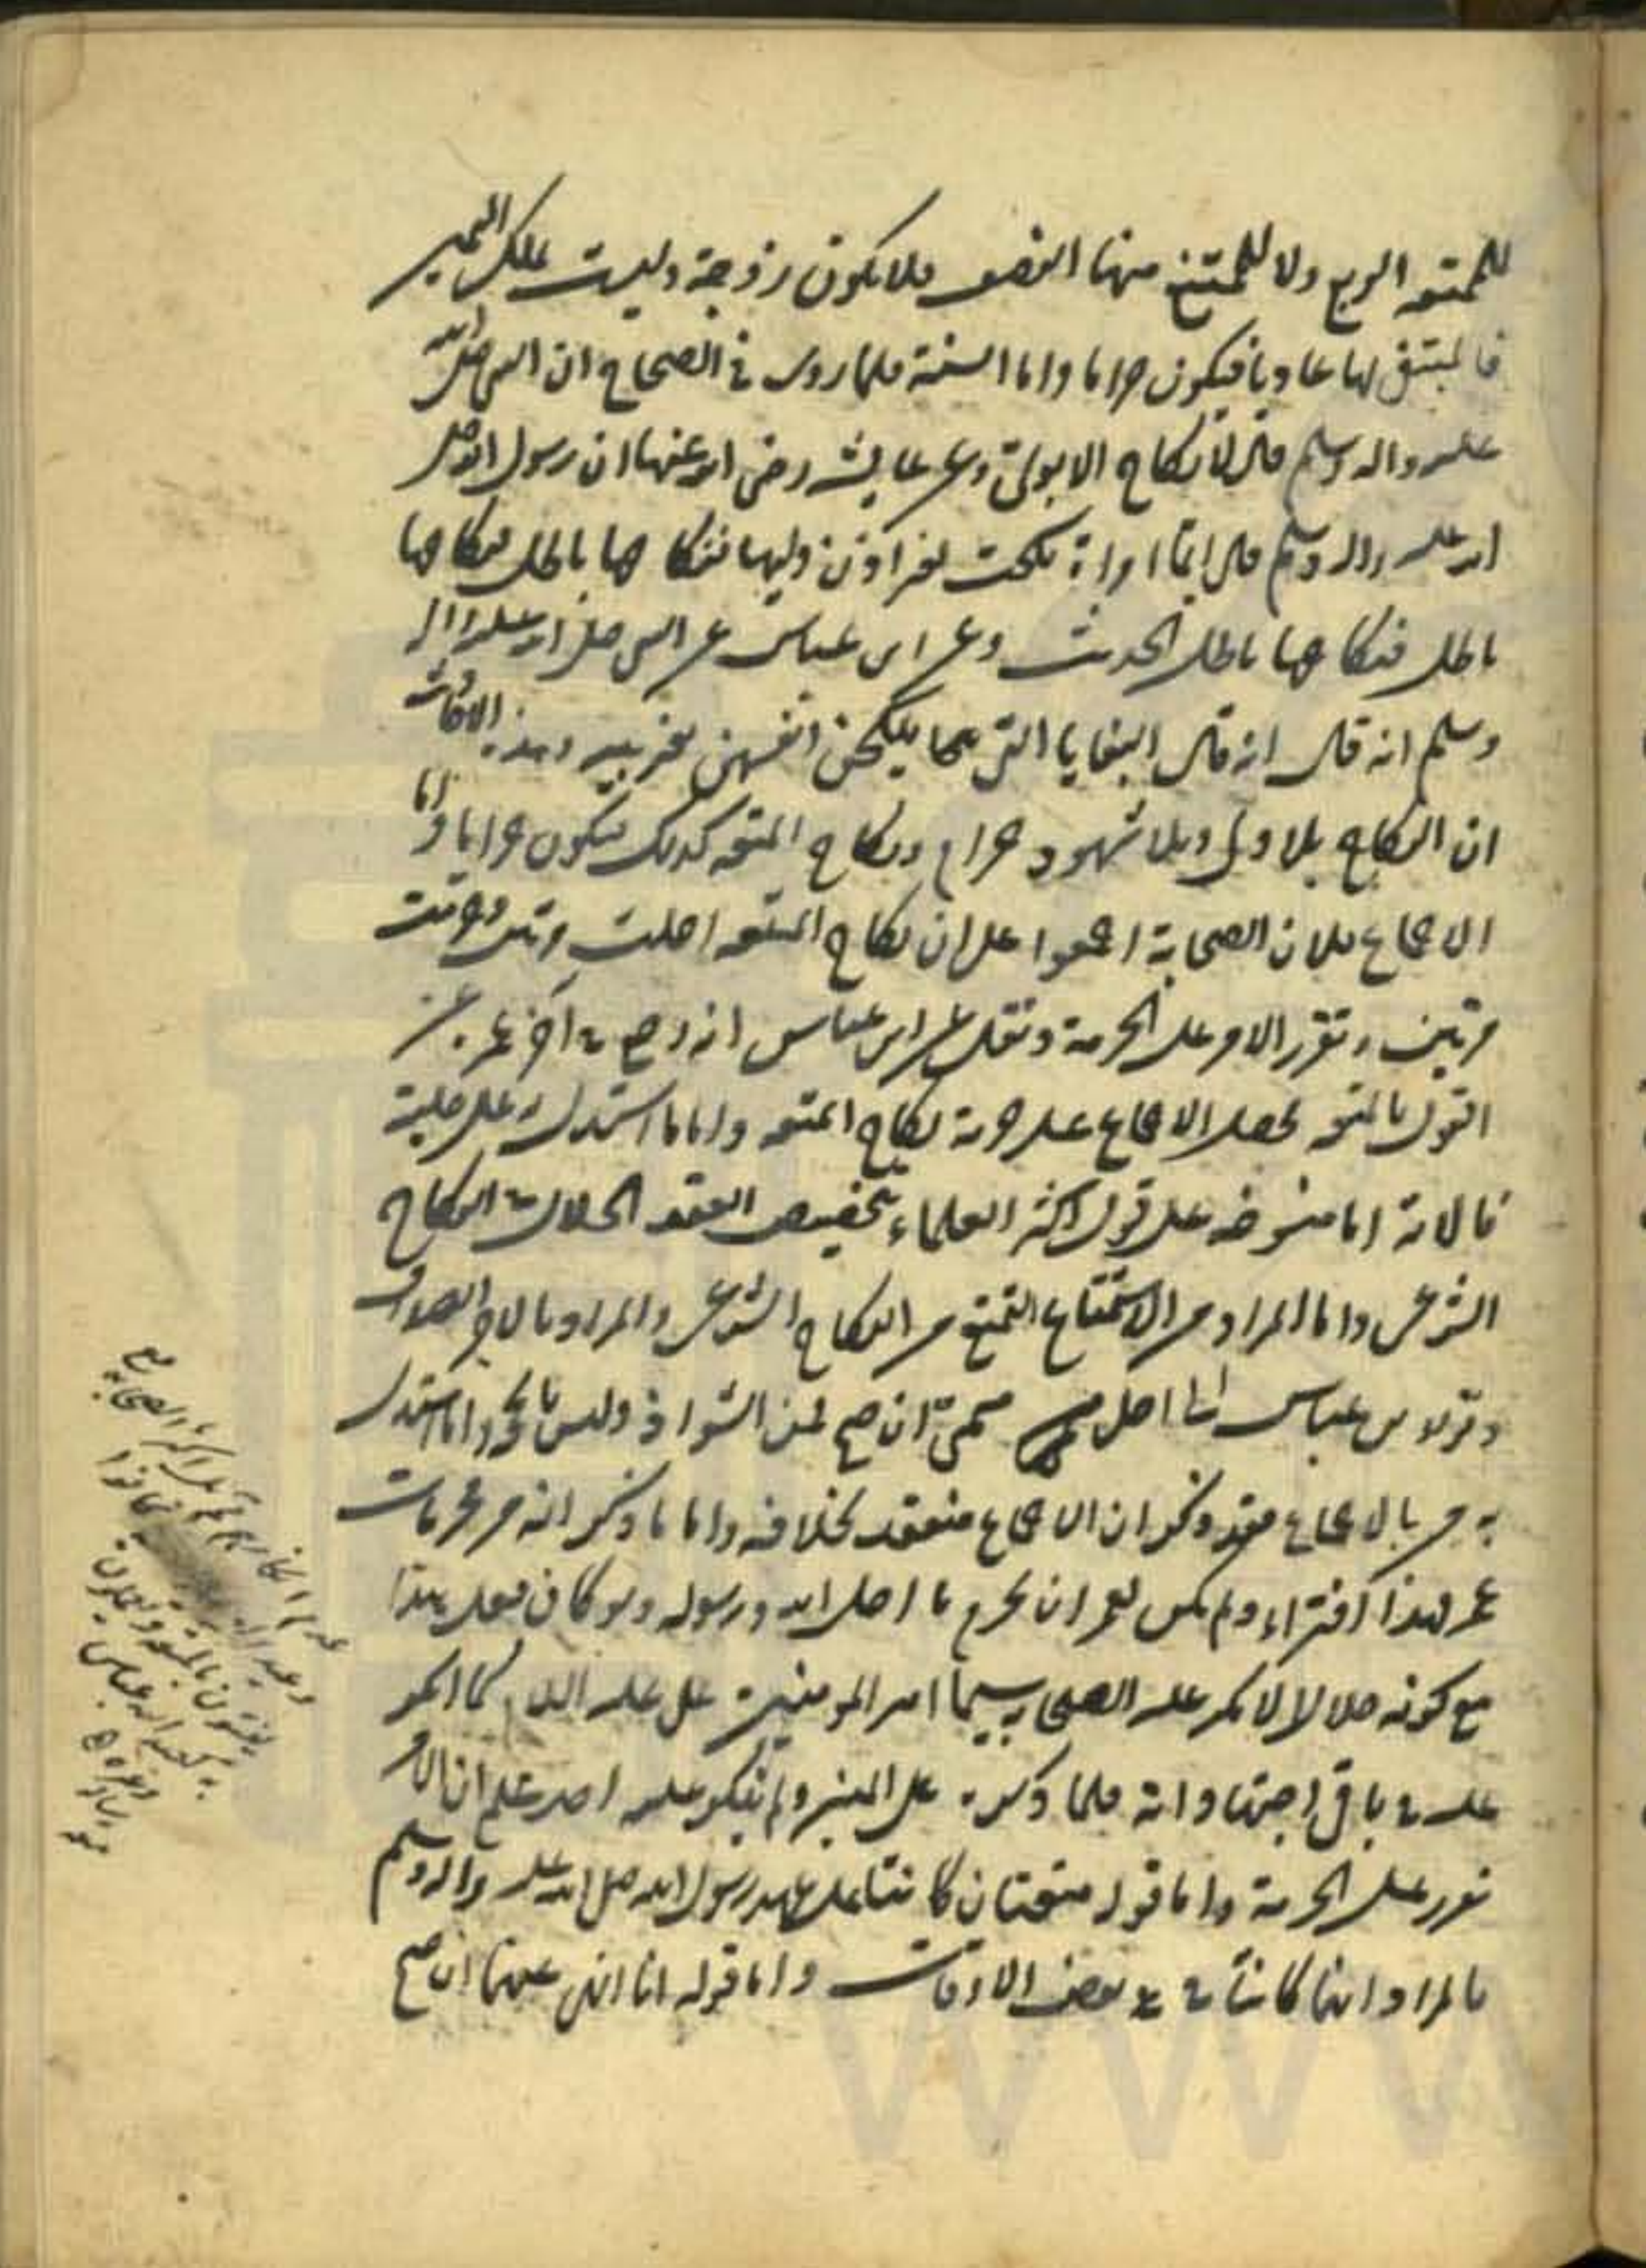 للمتعة الربع ولا للمتمتع منها النصف فلا يكون زوجة وليست بملك اليمين
فالمبتغى لها عاديا فيكون حراما واما السنة فلما روى في الصحاح ان النبي صلى الله
عليه واله وسلم قال لا نكاح الا بولى وعن عايشه رضى الله عنها ان رسول الله صلى
الله عليه واله وسلم قال ايما امراة نكحت بغير اذن وليها فنكاحها باطل فنكاحها
باطل فنكاحها باطل الحديث وعن ابن عباس عن النبي صلى الله عليه واله
وسلم انه قال انه قال البغايا التي ينكحن انفسهن بغير بينة
ان النكاح بلا ولى وبلا شهود حرام ونكاح المتعه كذلك فيكون حراما واما
الاجماع فلان الصحابة اجمعوا على ان نكاح المتعه احلت مرتين وحرمت
مرتين وتقرر الامر على الحرمة ونقل عن ابن عباس انه رجع في آخر عمره عن
القول بالمتعه فحصل الاجماع على حرمة نكاح المتعه واما ما استدل به على حلية
فالاية اما منسوخه على قول اكثر العلماء بتخصيص العقد الحلال في النكاح
الشرعى واما المراد من الاستمتاع التمتع من النكاح الشرعى والمراد بالاجر الصداق
وقول ابن عباس الى اجل مسمى ان صح فمن الشواذ وليس بحجة واما استدل
به من بالاجماع فقد ذكر ان الاجماع منعقد بخلافه واما ما ذكر انه من محرمات
عمر فهذا افتراء ولم يكن لعمر ان يحرم ما احل الله ورسوله ولو كان فعل هذا
مع كونه حلالا لانكر عليه الصحابه سيما امير المومنين على عليه السلام كما انكر
عليه في باقى اجتهاداته فلما ذكره على المنبر ولم ينكر عليه احد علم ان الامر
تقرر على الحرمة واما قوله متعتان كانتا على عهد رسول الله صلى الله عليه واله وسلم
فالمراد انهما كانتا في بعض الاوقات واما قوله انا انهى عنهما ان صح
اكثر الصحابه
كانوا
يفتون بالمتعه ويعملون
به كعبد الله بن عباس